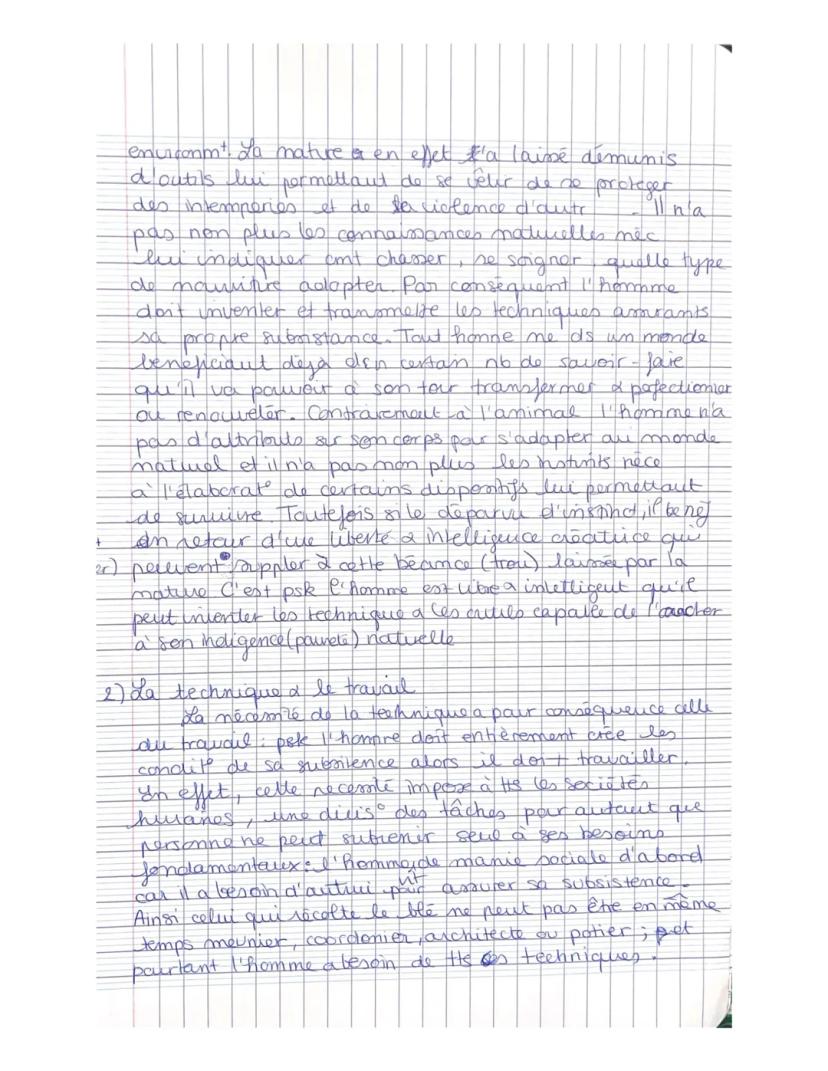 environmt. La nature en effet l'a laissé démunis
d'outils lui permettant de se vêtir de se proteger
des intemperies et de la violence d'autr - Il n'a
pas non plus les connaissances naturelles néc
lui indiquer cmt chasser, se soigner, quelle type
de nourriture adopter. Par conséquent l'hommme
doit inventer et transmettre les techniques assurants
sa propre subsistance. Tout homme ds un monde
beneficiant déjà d'un certain nb de savoir-faie
qu'il va pouvoir à son tour transformer & pafectionier
ou renouveler. Contrairement à l'animal l'homme n'a
pas d'attributs sur son corps pour s'adapter au monde
naturel et il n'a pas non plus les instints néce
à l'élaborat° de certains dispositifs lui permettant
de survivre. Toutefois si le dépourvu d'instind, il benef
en retour d'une liberté & intelligence créatrice qui
peuvent suppler à cette béance (trou) laissée par la
nature C'est psk l'homme est libre & intelligent qu'il
peut inventer les technique & les outils capable de l'
à son indigence (paureté) naturelle
2) La technique & le travail
La nécessité de la technique a pour conséquence celle
du travail : psk l'homme doit entièrement crée les
condit° de sa subsitence alors il doit travailler.
En effet, cette necessité impose à tts les sociétés
humaines, une divis° des tâches pour autant que
personne ne peut subvenir seul à ses besoins
fondamentaux : l'homme vit de manie sociale d'abord
car il a besoin d'autrui pour assurer sa subsistence.
Ainsi celui qui récolte le blé ne peut pas être en même
temps meunier, coordonier, architecte ou potier ; et
pourtant l'homme a besoin de tts ces techniques.